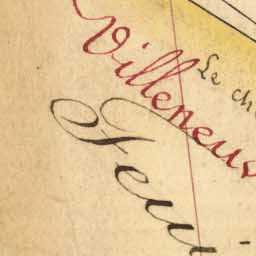 Villeneuv
Le ch
Feui